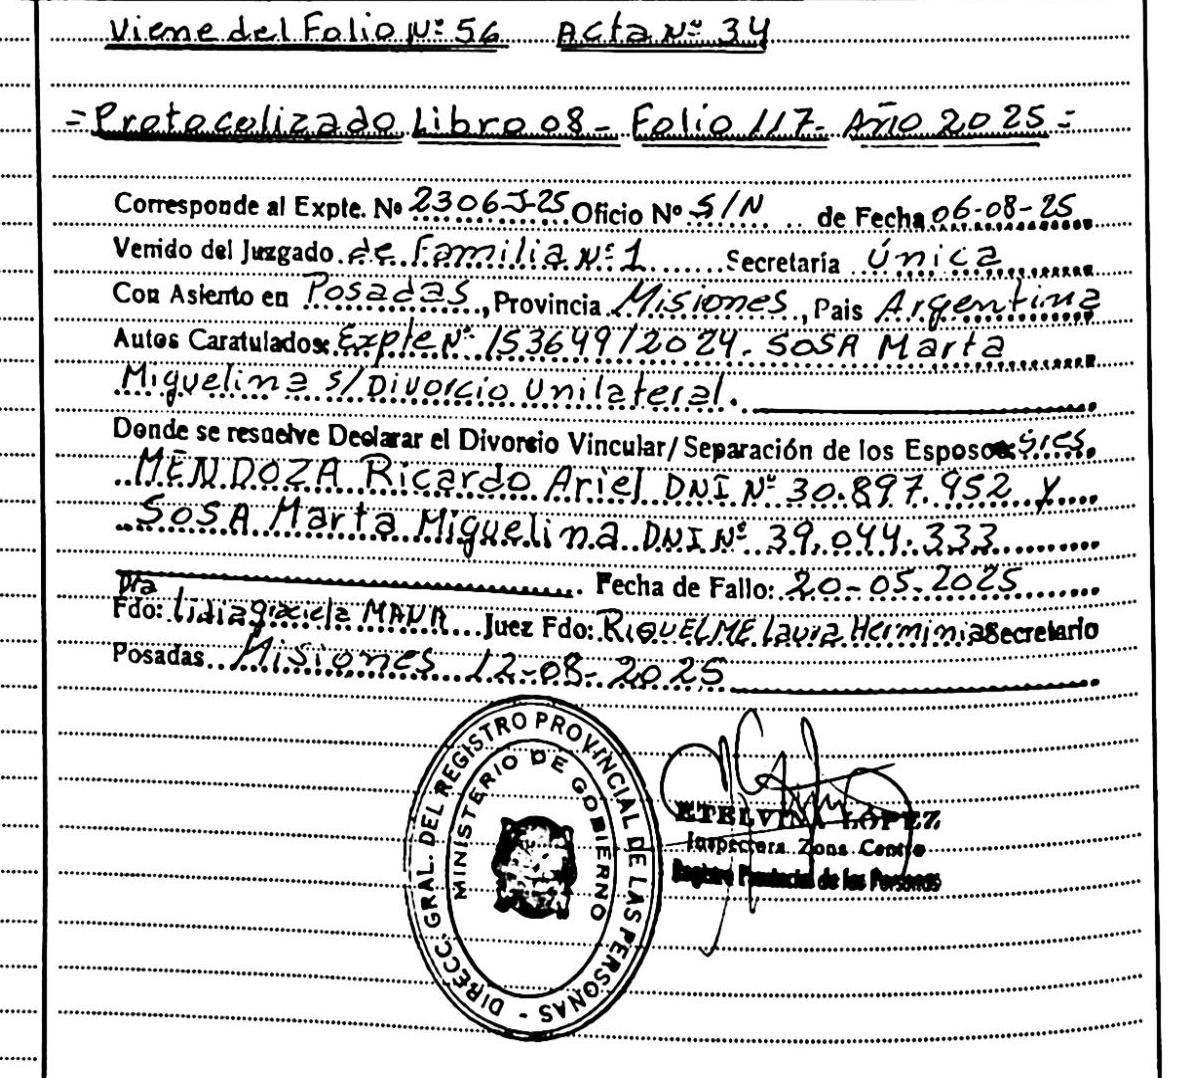 Viene del Folio Nº 56 Acta Nº 34
= Protocolizado Libro 08 - Folio 117 - Año 2025 =
Corresponde al Expte. Nº 2306-J-25 Oficio Nº S/N de Fecha 06-08-25
Venido del Juzgado de Familia Nº 1 Secretaría Única
Con Asiento en Posadas, Provincia Misiones, Pais Argentina
Autos Caratulados: Expte Nº 153649/2024. SOSA Marta
Miguelina s/Divorcio Unilateral.
Donde se resuelve Declarar el Divorcio Vincular/ Separación de los Esposos: Sres.
MENDOZA Ricardo Ariel DNI Nº 30.897.952 y
SOSA Marta Miguelina DNI Nº 39.044.333
Fecha de Fallo: 20-05-2025
Dra
Fdo: Lidia graciela Juez Fdo: RIQUELME Laura Herminia Secretario
Posadas Misiones 12-08-2025
DIRECC. GRAL. DEL REGISTRO PROVINCIAL DE LAS PERSONAS -
MINISTERIO DE GOBIERNO
ETELVINA LÓPEZ
Inspectora Zona Centro
Registro Provincial de las Personas